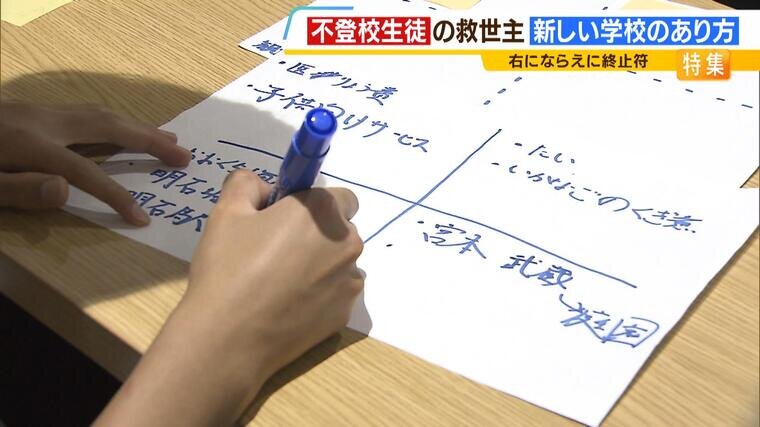 不登校生徒の救世主 新しい学校のあり方
右にならえに終止符
特集
・医りょう費
・子供向けサービス
・たい
・いかなごのくぎ煮
明石
明石
・宮本武蔵
庭園